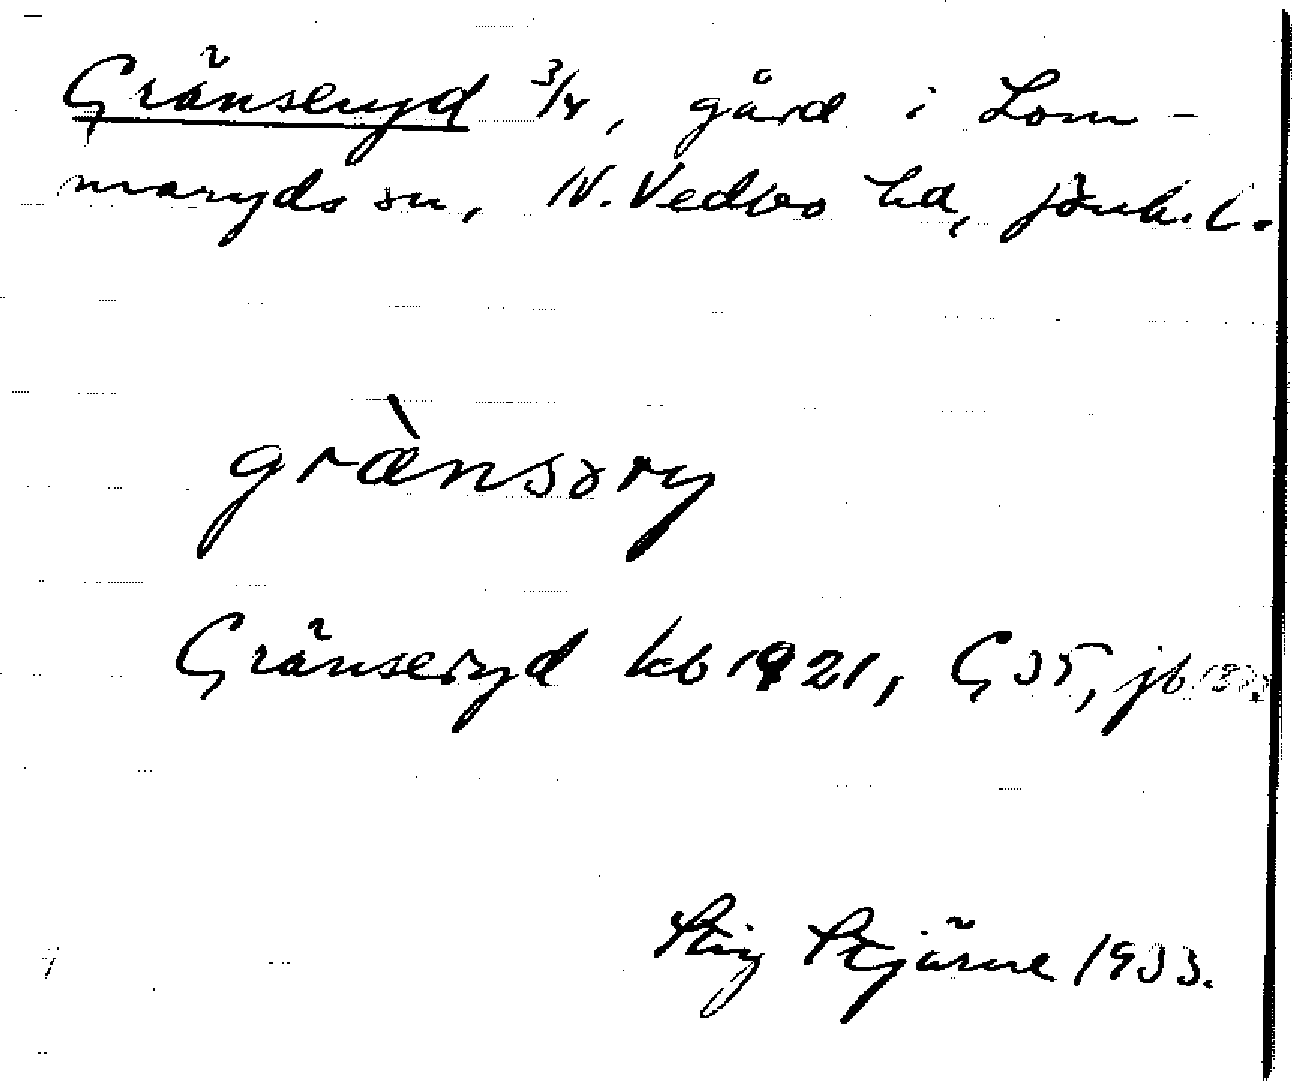 Gränseryd 3/4, gård i Lom-
maryds sn, N. Vedbo hd, Jönk. l.
grànsəry
Gränseryd kb 1921, G 35, jb
Stig Stjärne 1933.